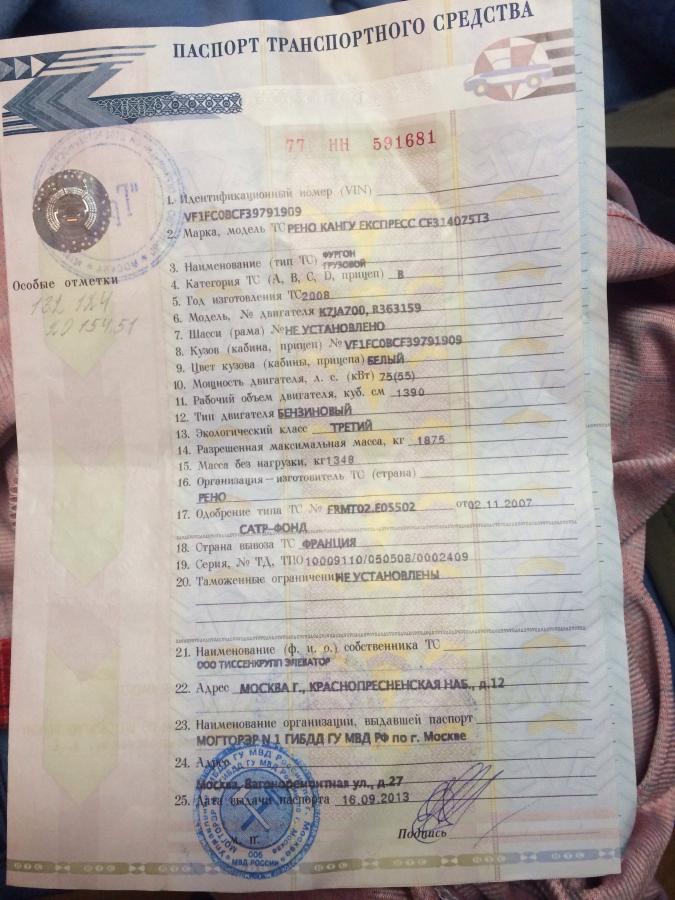 ПАСПОРТ ТРАНСПОРТНОГО СРЕДСТВА
77 НН 591681
1. Идентификационный номер (VIN)
VF1FC0BCF39791909
2. Марка, модель ТС РЕНО КАНГУ ЕКСПРЕСС CF31407513
3. Наименование (тип ТС) ФУРГОН
ГРУЗОВОЙ
4. Категория ТС (А, В, С, D, прицеп) В
Особые отметки
5. Год изготовления ТС 2008
132 124
6. Модель, № двигателя K7JA700, R363159
20 15451
7. Шасси (рама) № НЕ УСТАНОВЛЕНО
8. Кузов (кабина, прицеп) № VF1FC0BCF39791909
9. Цвет кузова (кабины, прицепа) БЕЛЫЙ
10. Мощность двигателя, л. с. (кВт) 75(55)
11. Рабочий объем двигателя, куб. см 1390
12. Тип двигателя БЕНЗИНОВЫЙ
13. Экологический класс ТРЕТИЙ
14. Разрешенная максимальная масса, кг 1875
15. Масса без нагрузки, кг 1348
16. Организация-изготовитель ТС (страна)
РЕНО
17. Одобрение типа ТС № FRMT02.E05502 от 02.11.2007
САТР-ФОНД
18. Страна вывоза ТС ФРАНЦИЯ
19. Серия, № ТД, ТПО 10009110/050508/0002409
20. Таможенные ограничения НЕ УСТАНОВЛЕНЫ
21. Наименование (ф. и. о.) собственника ТС
ООО ТИССЕНКРУПП ЭЛЕВАТОР
22. Адрес МОСКВА Г., КРАСНОПРЕСНЕНСКАЯ НАБ., д.12
23. Наименование организации, выдавшей паспорт
МОГТОРЭР N.1 ГИБДД ГУ МВД РФ по г. Москве
24. Адрес
Москва, Вагоноремонтная ул., д.27
25. Дата выдачи паспорта 16.09.2013
М. П.
Подпись
006
МВД РОССИИ